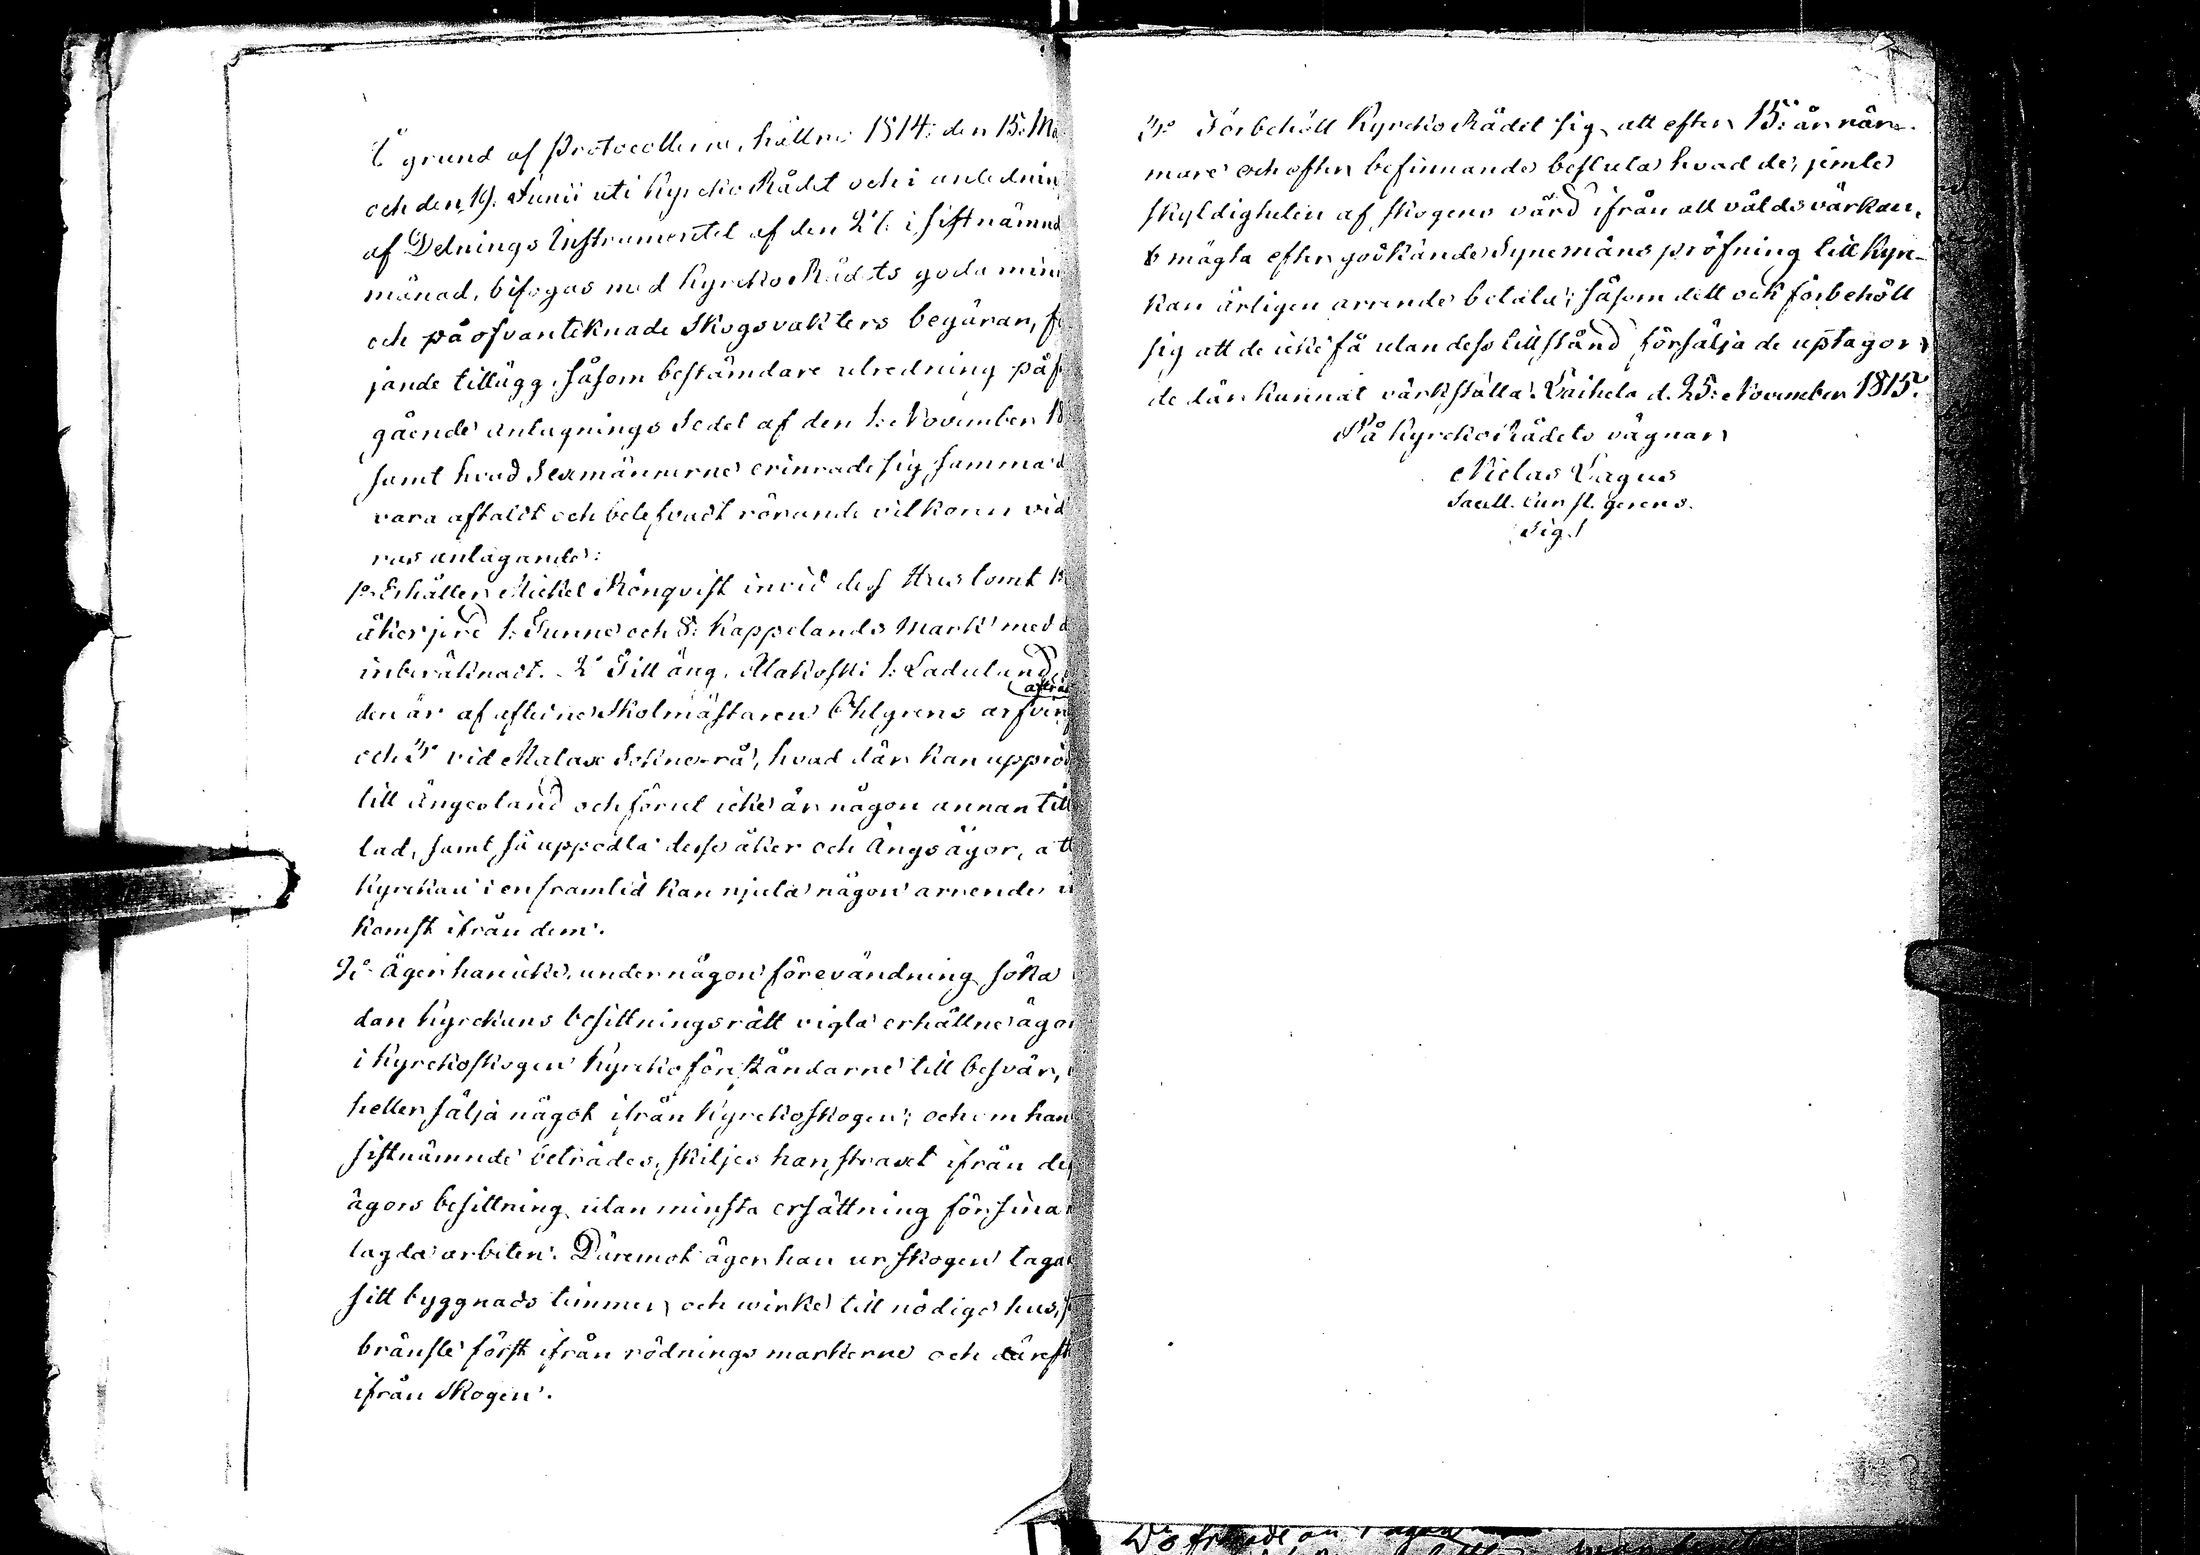 I grund af Protocollerne, hållne 1814: den 15: Ma
och den 19. Junii uti KyrckoRådet och i anledning
af Delnings Instrumentet af den 27. i sistnämnd
månad, bifogas med KyrckoRådets goda min
och på ofvanteknade Skogsvakters begäran, f
jande tillägg, såsom bestämdare utredning på f
gående antagnings Sedel af den 1: November 18
samt hvad Sexmännerne erinrade sig samma d
vara aftaldt och belefvadt rörande vilkoren vid
ras antagande:
1o Erhåller Mickel Rönqvist invid dess Hustomt
åkerjord 1: Tunne och 8: Kappelands Mark med d
inberäknadt. 2o Till äng, Alakoski 1: Laduland,
den är af aflidne Skolmästaren Ohlgrens arfving
och 3o vid Malax Sokne-rå, hvad där kan uppröd
till ängesland och förut icke är någon annan till
lad, samt så uppodla desse åker och Ängsägor, att
Kyrckan i en framtid kan njuta någon arrende
komst ifrån dem.
2o Äger han icke, under någon förevändning söka
dan Kyrckans besittningsrätt vigta erhållne ägor
i Kyrckoskogen Kyrckoföreståndarne till besvär,
heller sälja något ifrån Kyrckoskogen; och om han
sistnämnde beträdes, skiljes han straxt ifrån des
ägors besittning utan minsta ersättning för sina
lagda arbeten. Däremot äger han ur skogen taga
sitt byggnads timmer och wirke till nödige hus,
bränsle först ifrån rödnings markerne och däreft
ifrån Skogen.
3o Förbehöll KyrckoRådet sig, att efter 15: år när-
mare och efter befinnande besluta hvad de, jemte
skyldigheten af skogens vård ifrån all våldsvärkan,
mägta efter godkände Synemäns pröfning till Kyr-
kan årligen arrende betala; såsom dett ock förbehöll
sig att de icke få utan dess tillstånd försälja de uptagor
de där kunnat värkställa. Laihela d. 25: November 1815.
På KyrckoRådets vägnar
Niclas Vagus
Sacell. Cur st. gerens.
Sig.